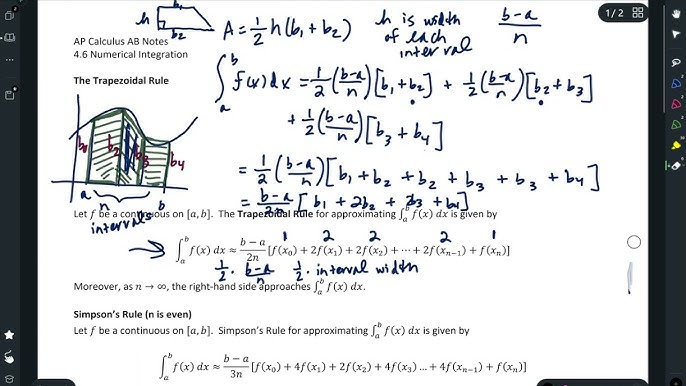 1/2
h b₁ b₂ A = 1/2 h(b₁ + b₂) h is width of each interval (b-a)/n
AP Calculus AB Notes
4.6 Numerical Integration
The Trapezoidal Rule
∫ₐᵇ f(x)dx = 1/2 ((b-a)/n) [b₁ + b₂] + 1/2 ((b-a)/n) [b₂ + b₃]
+ 1/2 ((b-a)/n) [b₃ + b₄]
= 1/2 ((b-a)/n) [b₁ + b₂ + b₂ + b₃ + b₃ + b₄]
= (b-a)/2n [b₁ + 2b₂ + 2b₃ + b₄]
b₂ b₃ b₄
a n b
intervals
Let f be a continuous on [a, b]. The Trapezoidal Rule for approximating ∫ₐᵇ f(x) dx is given by
1 2 2 2 1
∫ₐᵇ f(x) dx ≈ (b − a)/2n [f(x₀) + 2f(x₁) + 2f(x₂) + ⋯ + 2f(xₙ₋₁) + f(xₙ)]
1/2 · (b-a)/n 1/2 · interval width
Moreover, as n → ∞, the right-hand side approaches ∫ₐᵇ f(x) dx.
Simpson's Rule (n is even)
Let f be a continuous on [a, b]. Simpson's Rule for approximating ∫ₐᵇ f(x) dx is given by
∫ₐᵇ f(x) dx ≈ (b − a)/3n [f(x₀) + 4f(x₁) + 2f(x₂) + 4f(x₃) … + 4f(xₙ₋₁) + f(xₙ)]